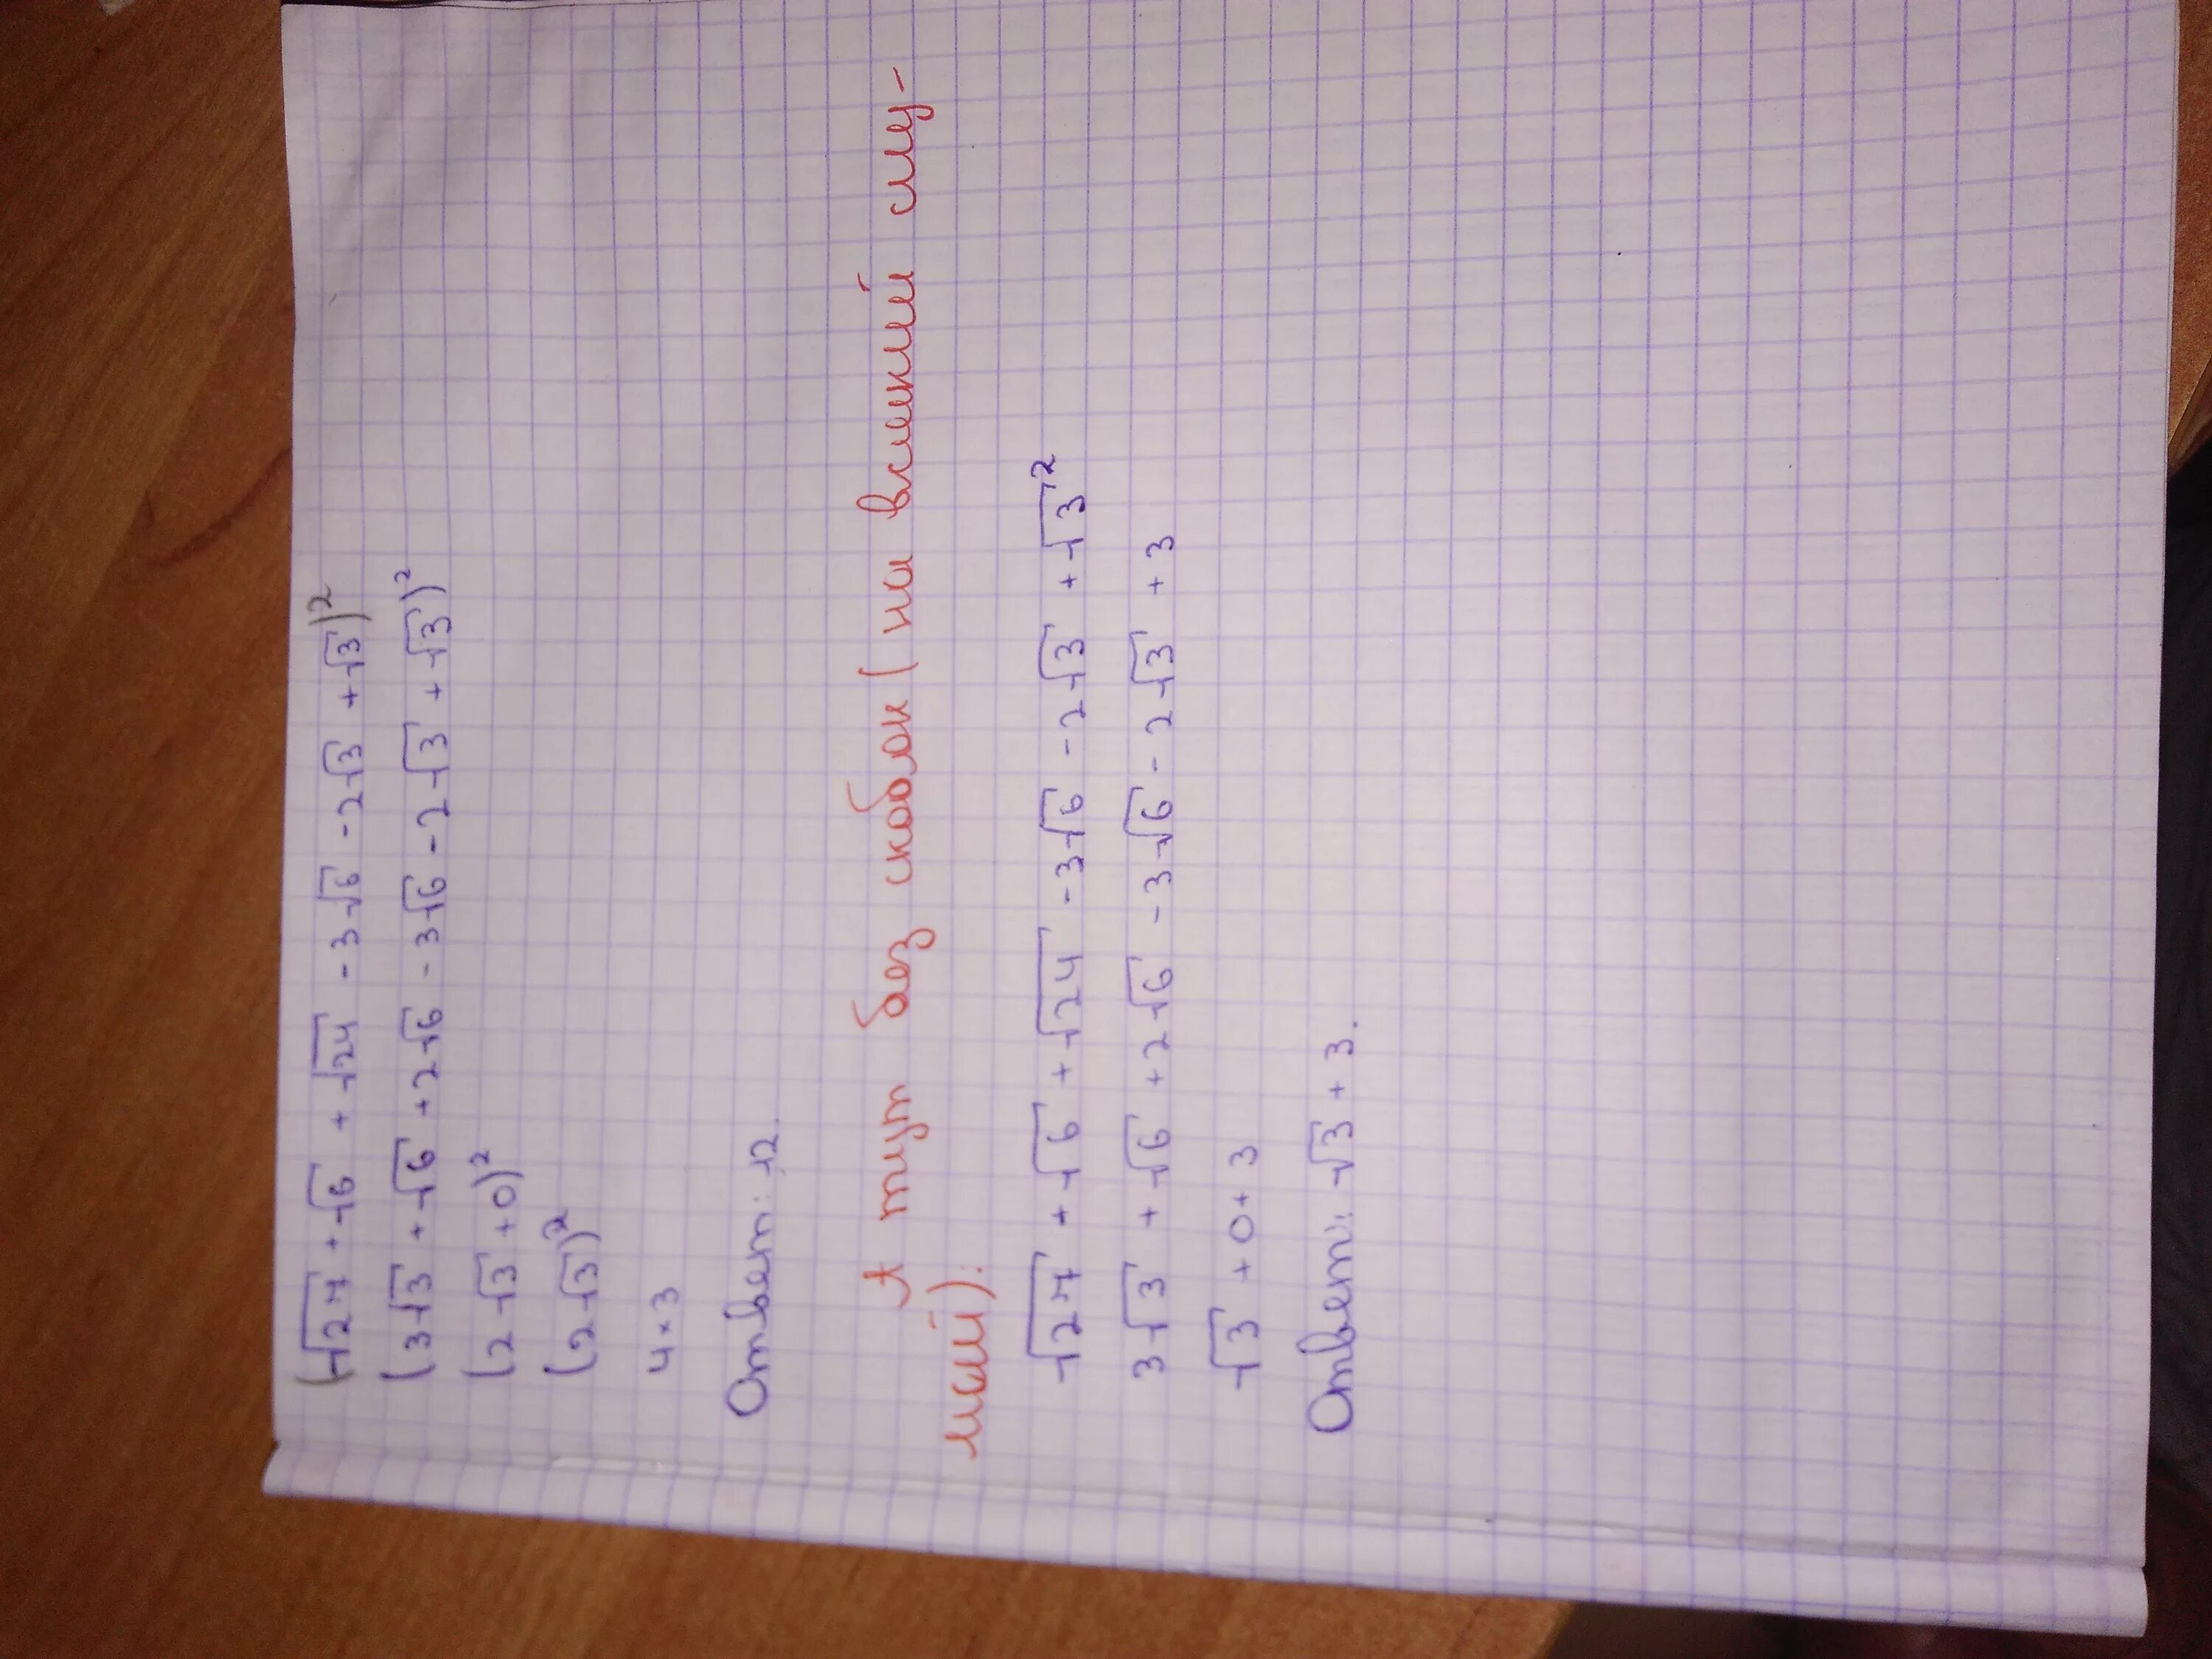 (√27 + √6 + √24 - 3√6 - 2√3 + √3)²
(3√3 + √6 + 2√6 - 3√6 - 2√3 + √3)²
(2√3 + 0)²
(2√3)²
4×3
Ответ: 12.
А тут без скобок (на всякий слу-
чай):
√27 + √6 + √24 - 3√6 - 2√3 + √3²
3√3 + √6 + 2√6 - 3√6 - 2√3 + 3
√3 + 0 + 3
Ответ: √3 + 3.